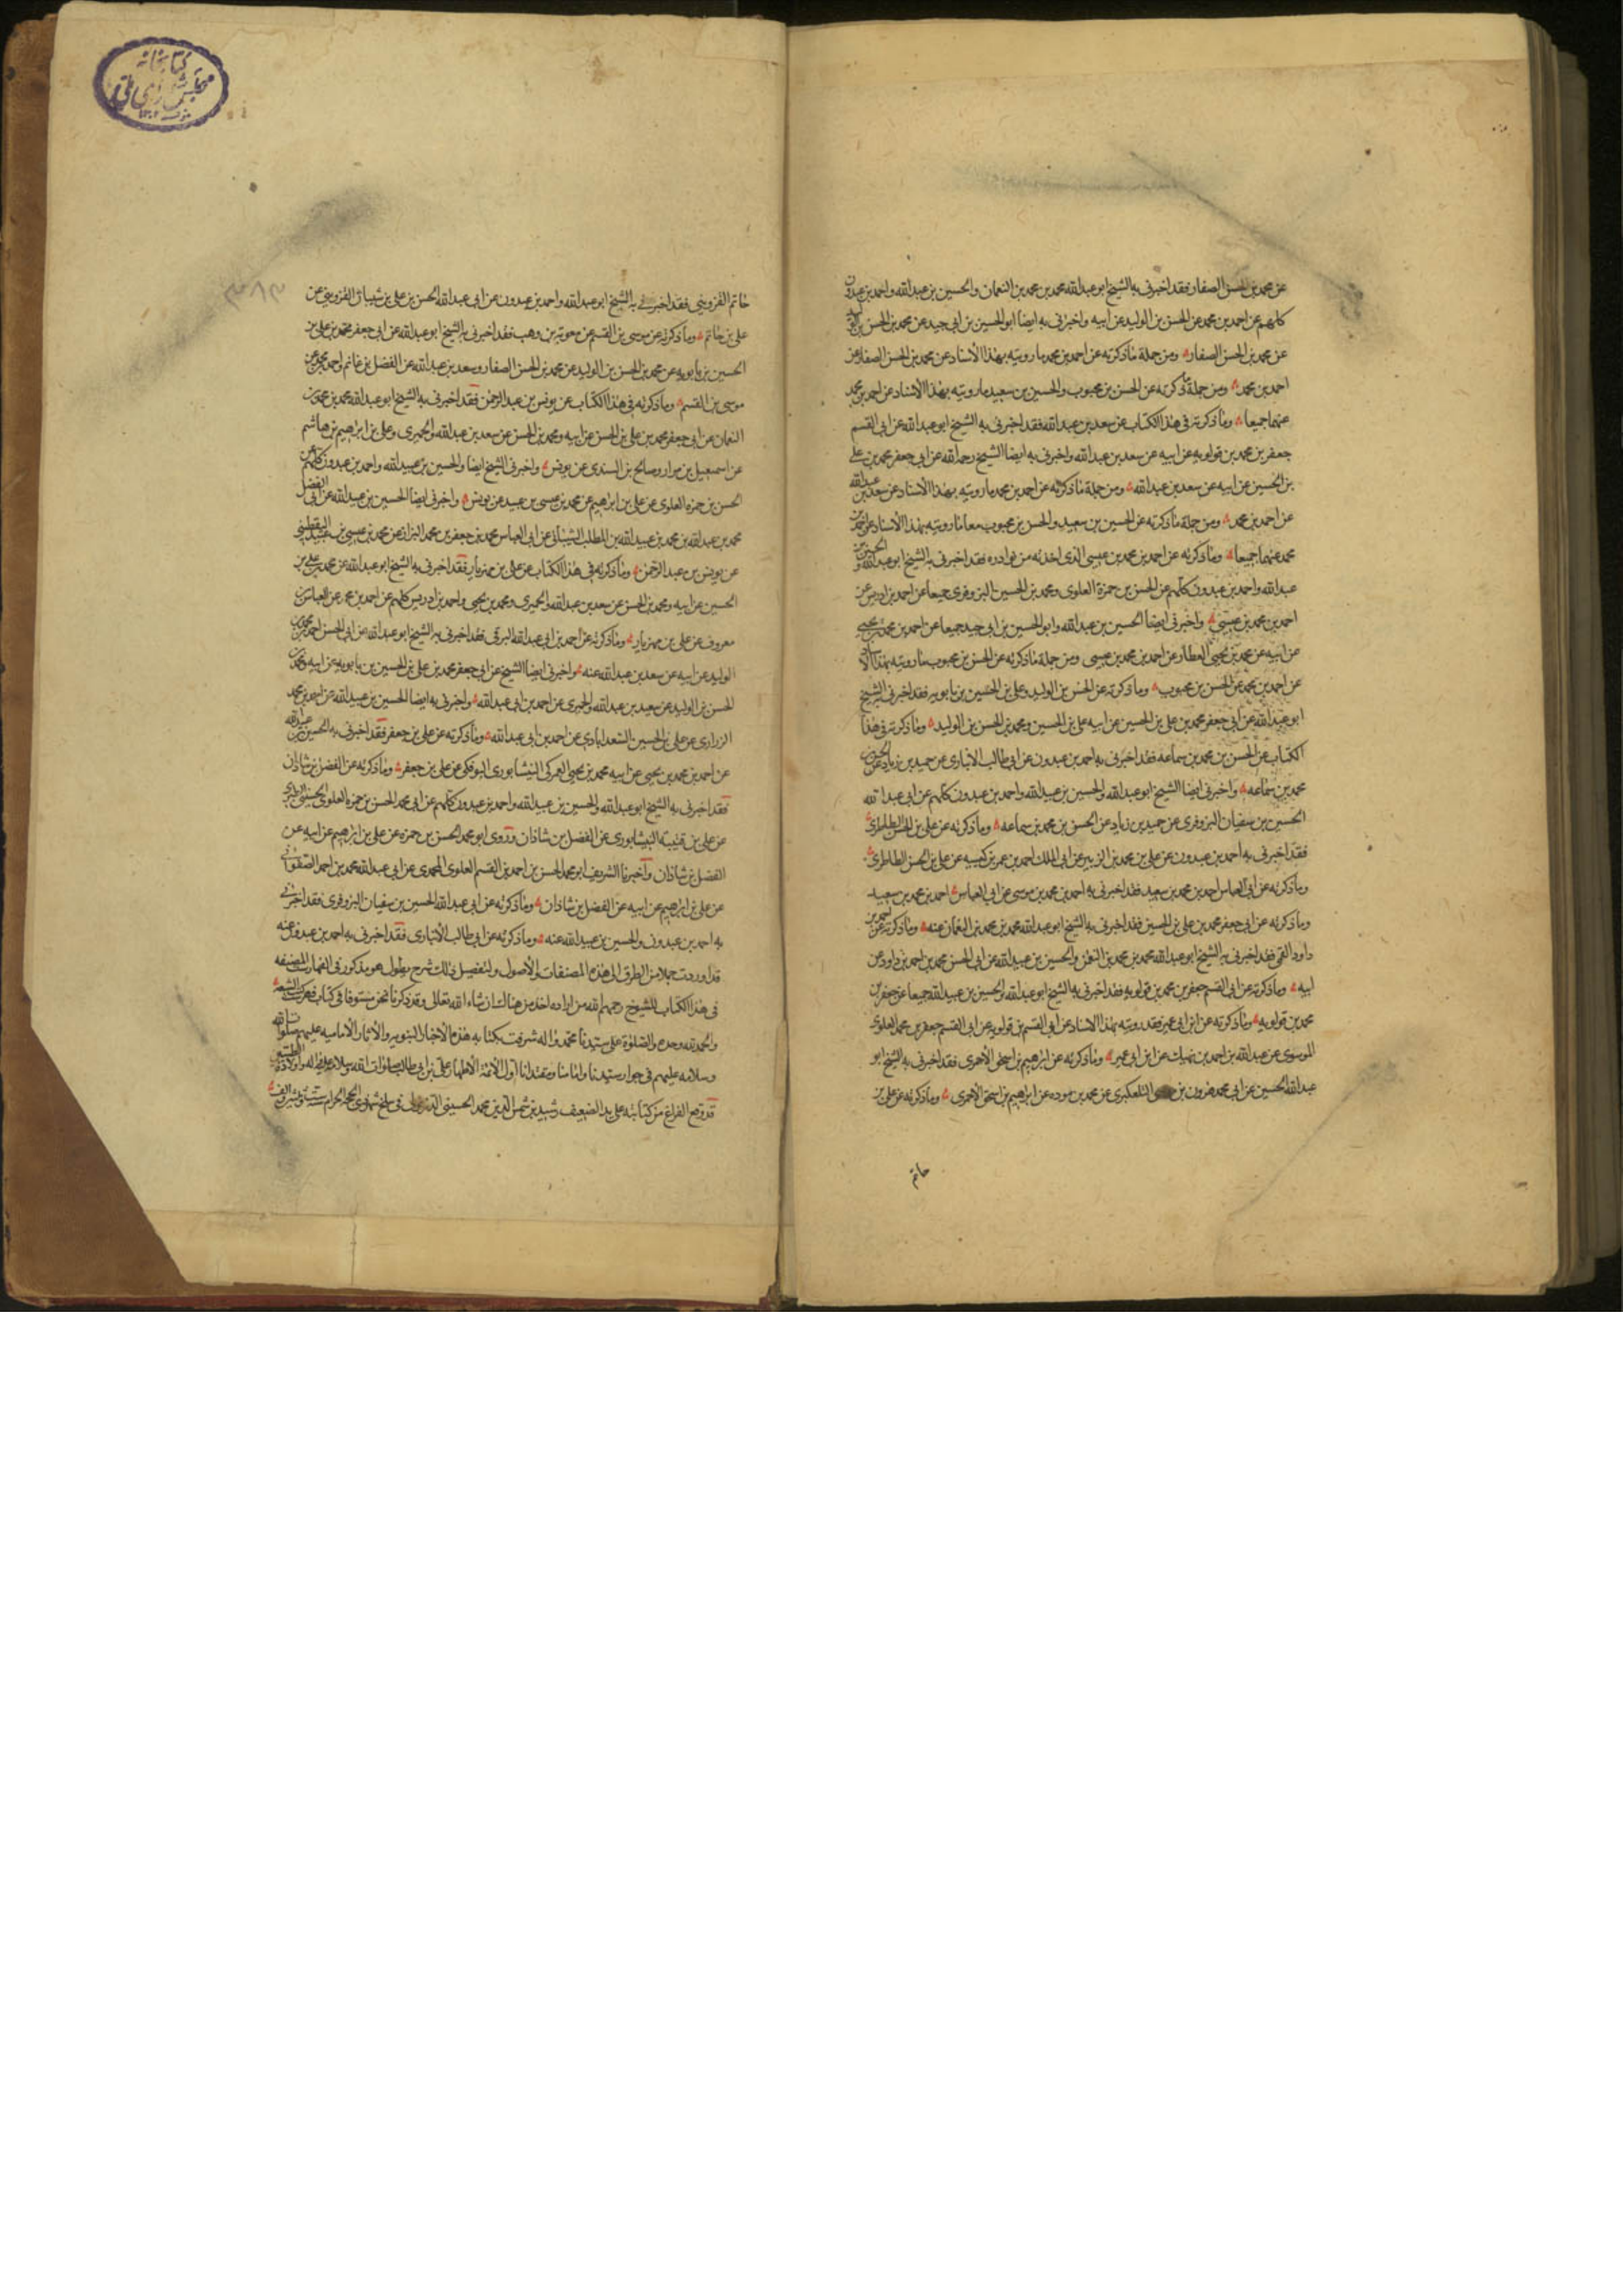 عن محمد بن الحسن الصفار فقد اخبرنى به الشيخ ابو عبدالله محمد بن محمد بن النعمان والحسين بن عبيدالله واحمد بن عبدون
كلهم عن احمد بن محمد بن الحسن بن الوليد عن ابيه واخبرنى به ايضا ابو الحسين بن ابى جيد عن محمد بن الحسن بن الوليد
عن محمد بن الحسن الصفار ومن جملة ما ذكرته عن احمد بن محمد ما رويته بهذا الاسناد عن محمد بن الحسن الصفار عن
احمد بن محمد ومن جملة ما ذكرته عن الحسن بن محبوب والحسين بن سعيد ما رويته بهذا الاسناد عن احمد بن محمد
عنهما جميعا وما ذكرته فى هذا الكتاب عن سعد بن عبدالله فقد اخبرنى به الشيخ ابو عبدالله عن ابى القسم
جعفر بن محمد بن قولويه عن ابيه عن سعد بن عبدالله واخبرنى به ايضا الشيخ رحمه الله عن ابى جعفر محمد بن على
بن الحسين عن ابيه عن سعد بن عبدالله ومن جملة ما ذكرته عن احمد بن محمد ما رويته بهذا الاسناد عن سعد بن عبدالله
عن احمد بن محمد ومن جملة ما ذكرته عن الحسين بن سعيد والحسن بن محبوب معا ما رويته بهذا الاسناد عن احمد بن
محمد عنهما جميعا وما ذكرته عن احمد بن محمد بن عيسى الذى اخذته من نوادره فقد اخبرنى به الشيخ ابو عبدالله والحسين بن
عبدالله واحمد بن عبدون كلهم عن الحسن بن حمزة العلوى ومحمد بن الحسين البزوفرى جميعا عن احمد بن ادريس عن
احمد بن محمد بن عيسى واخبرنى ايضا الحسين بن عبدالله وابو الحسين بن ابى جيد جميعا عن احمد بن محمد بن يحيى
عن ابيه عن محمد بن يحيى العطار عن احمد بن محمد بن عيسى ومن جملة ما ذكرته عن الحسن بن محبوب ما رويته بهذا الاسناد
عن احمد بن محمد عن الحسن بن محبوب وما ذكرته عن الحسن بن الوليد وعلى بن الحسين بن بابويه فقد اخبرنى به الشيخ
ابو عبدالله عن ابى جعفر محمد بن على بن الحسين عن ابيه على بن الحسين ومحمد بن الحسن بن الوليد وما ذكرته فى هذا
الكتاب عن الحسن بن محمد بن سماعه فقد اخبرنى به احمد بن عبدون عن ابى طالب الانبارى عن حميد بن زياد عن الحسن بن
محمد بن سماعه واخبرنى ايضا الشيخ ابو عبدالله والحسين بن عبيدالله واحمد بن عبدون كلهم عن ابى عبدالله
الحسين بن سفيان البزوفرى عن حميد بن زياد عن الحسن بن محمد بن سماعه وما ذكرته عن على بن الحسن الطاطرى
فقد اخبرنى به احمد بن عبدون عن على بن محمد بن الزبير عن ابى الملك احمد بن عمر بن كيسبه عن على بن الحسن الطاطرى
وما ذكرته عن ابى العباس احمد بن محمد بن سعيد فقد اخبرنى به احمد بن محمد بن موسى عن ابى العباس احمد بن محمد بن سعيد
وما ذكرته عن ابى جعفر محمد بن على بن الحسين فقد اخبرنى به الشيخ ابو عبدالله محمد بن محمد بن النعمان عنه وما ذكرته عن احمد بن
داود القمى فقد اخبرنى به الشيخ ابو عبدالله محمد بن محمد بن النعمن والحسين بن عبيدالله عن ابى الحسن محمد بن احمد بن داود عن
ابيه وما ذكرته عن ابى القسم جعفر بن محمد بن قولويه فقد اخبرنى به الشيخ ابو عبدالله والحسين بن عبيدالله جميعا عن جعفر بن
محمد بن قولويه وما ذكرته عن ابن ابى عمير فقد رويته بهذا الاسناد عن ابى القسم بن قولويه عن ابى القسم جعفر بن محمد العلوى
الموسوى عن عبدالله بن احمد بن نهيك عن ابن ابى عمير وما ذكرته عن ابراهيم بن اسحق الاحمرى فقد اخبرنى به الشيخ ابو
عبدالله الحسين عن ابى محمد هرون بن موسى التلعكبرى عن محمد بن هوده عن ابراهيم بن اسحق الاحمرى وما ذكرته عن على بن
حاتم
كتابخانه
مجلس شوراى ملى
حاتم القزوينى فقد اخبرنى به الشيخ ابو عبدالله واحمد بن عبدون عن ابى عبدالله الحسن بن على بن شيبان القزوينى عن
على بن حاتم وما ذكرته عن موسى بن القسم عن معوية بن وهب فقد اخبرنى به الشيخ ابو عبدالله عن ابى جعفر محمد بن على بن
الحسين بن بابويه عن محمد بن الحسن بن الوليد عن محمد بن الحسن الصفار وسعد بن عبدالله عن الفضل بن غانم واحمد بن محمد عن
موسى بن القسم وما ذكرته فى هذا الكتاب عن يونس بن عبدالرحمن فقد اخبرنى به الشيخ ابو عبدالله محمد بن محمد بن
النعمان عن ابى جعفر محمد بن على بن الحسن عن ابيه ومحمد بن الحسن عن سعد بن عبدالله والحميرى وعلى بن ابراهيم بن هاشم
عن اسمعيل بن مرار وصالح بن السندى عن يونس واخبرنى الشيخ ايضا والحسين بن عبيدالله واحمد بن عبدون كلهم عن
الحسن بن حمزه العلوى عن على بن ابراهيم عن محمد بن عيسى بن عبيد عن يونس واخبرنى ايضا الحسين بن عبيدالله عن ابى المفضل
محمد بن عبدالله بن محمد بن عبيدالله بن المطلب الشيبانى عن ابى العباس محمد بن جعفر بن محمد البزاز عن محمد بن عيسى بن عبيد اليقطينى
عن يونس بن عبدالرحمن وما ذكرته فى هذا الكتاب عن على بن مهزيار فقد اخبرنى به الشيخ ابو عبدالله عن محمد بن على بن
الحسين عن ابيه ومحمد بن الحسن عن سعد بن عبدالله والحميرى ومحمد بن يحيى واحمد بن ادريس كلهم عن احمد بن محمد عن العباس بن
معروف عن على بن مهزيار وما ذكرته عن احمد بن ابى عبدالله البرقى فقد اخبرنى به الشيخ ابو عبدالله عن ابى الحسن احمد بن محمد بن
الوليد عن ابيه عن سعد بن عبدالله عنه واخبرنى ايضا الشيخ عن ابى جعفر محمد بن على بن الحسين بن بابويه عن ابيه ومحمد بن
الحسن بن الوليد عن سعد بن عبدالله والحميرى عن احمد بن ابى عبدالله واخبرنى به ايضا الحسين بن عبيدالله عن احمد بن محمد
الزرارى عن على بن الحسين السعدابادى عن احمد بن ابى عبدالله وما ذكرته عن على بن جعفر فقد اخبرنى به الحسين بن عبيدالله
عن احمد بن محمد بن يحيى عن ابيه محمد بن يحيى العمركى النيشابورى البوفكى عن على بن جعفر وما ذكرته عن الفضل بن شاذان
فقد اخبرنى به الشيخ ابو عبدالله والحسين بن عبيدالله واحمد بن عبدون كلهم عن ابى محمد الحسن بن حمزه العلوى الحسينى الطبرى
عن على بن قتيبه النيشابورى عن الفضل بن شاذان وروى ابو محمد الحسن بن حمزه عن على بن ابراهيم عن ابيه عن
الفضل بن شاذان واخبرنا الشريف ابو محمد الحسن بن احمد بن القسم العلوى المحمدى عن ابى عبدالله محمد بن احمد الصفوانى
عن على بن ابراهيم عن ابيه عن الفضل بن شاذان وما ذكرته عن ابى عبدالله الحسين بن سفيان البزوفرى فقد اخبرنى
به احمد بن عبدون والحسين بن عبيدالله عنه وما ذكرته عن ابى طالب الانبارى فقد اخبرنى به احمد بن عبدون عنه
قد اوردت جملا من الطرق الى هذه المصنفات والاصول ولتفصيل ذلك شرح يطول هو مذكور فى الفهارست المصنفه
فى هذا الكتاب للشيوخ رحمهم الله من اراده اخذ من هناك ان شاء الله تعالى وقد ذكرنا نحن مستوفا فى كتاب فهرست الشيعة
والحمدلله وحده والصلوة على سيدنا محمد واله شرفت بكتابه هذه الاخبار النبويه والاثار الاماميه عليهم صلوات الله
وسلامه عليهم فى جوار سيدنا وامامنا ومقتدانا اول الائمة الاطهار على بن ابى طالب صلوات الله وسلامه عليه واولاده الطيبين
قد وقع الفراغ من كتابته على يد الضعيف رشيد بن شمس الدين محمد الحسينى فى سلخ شهر ذى الحجة الحرام سنة